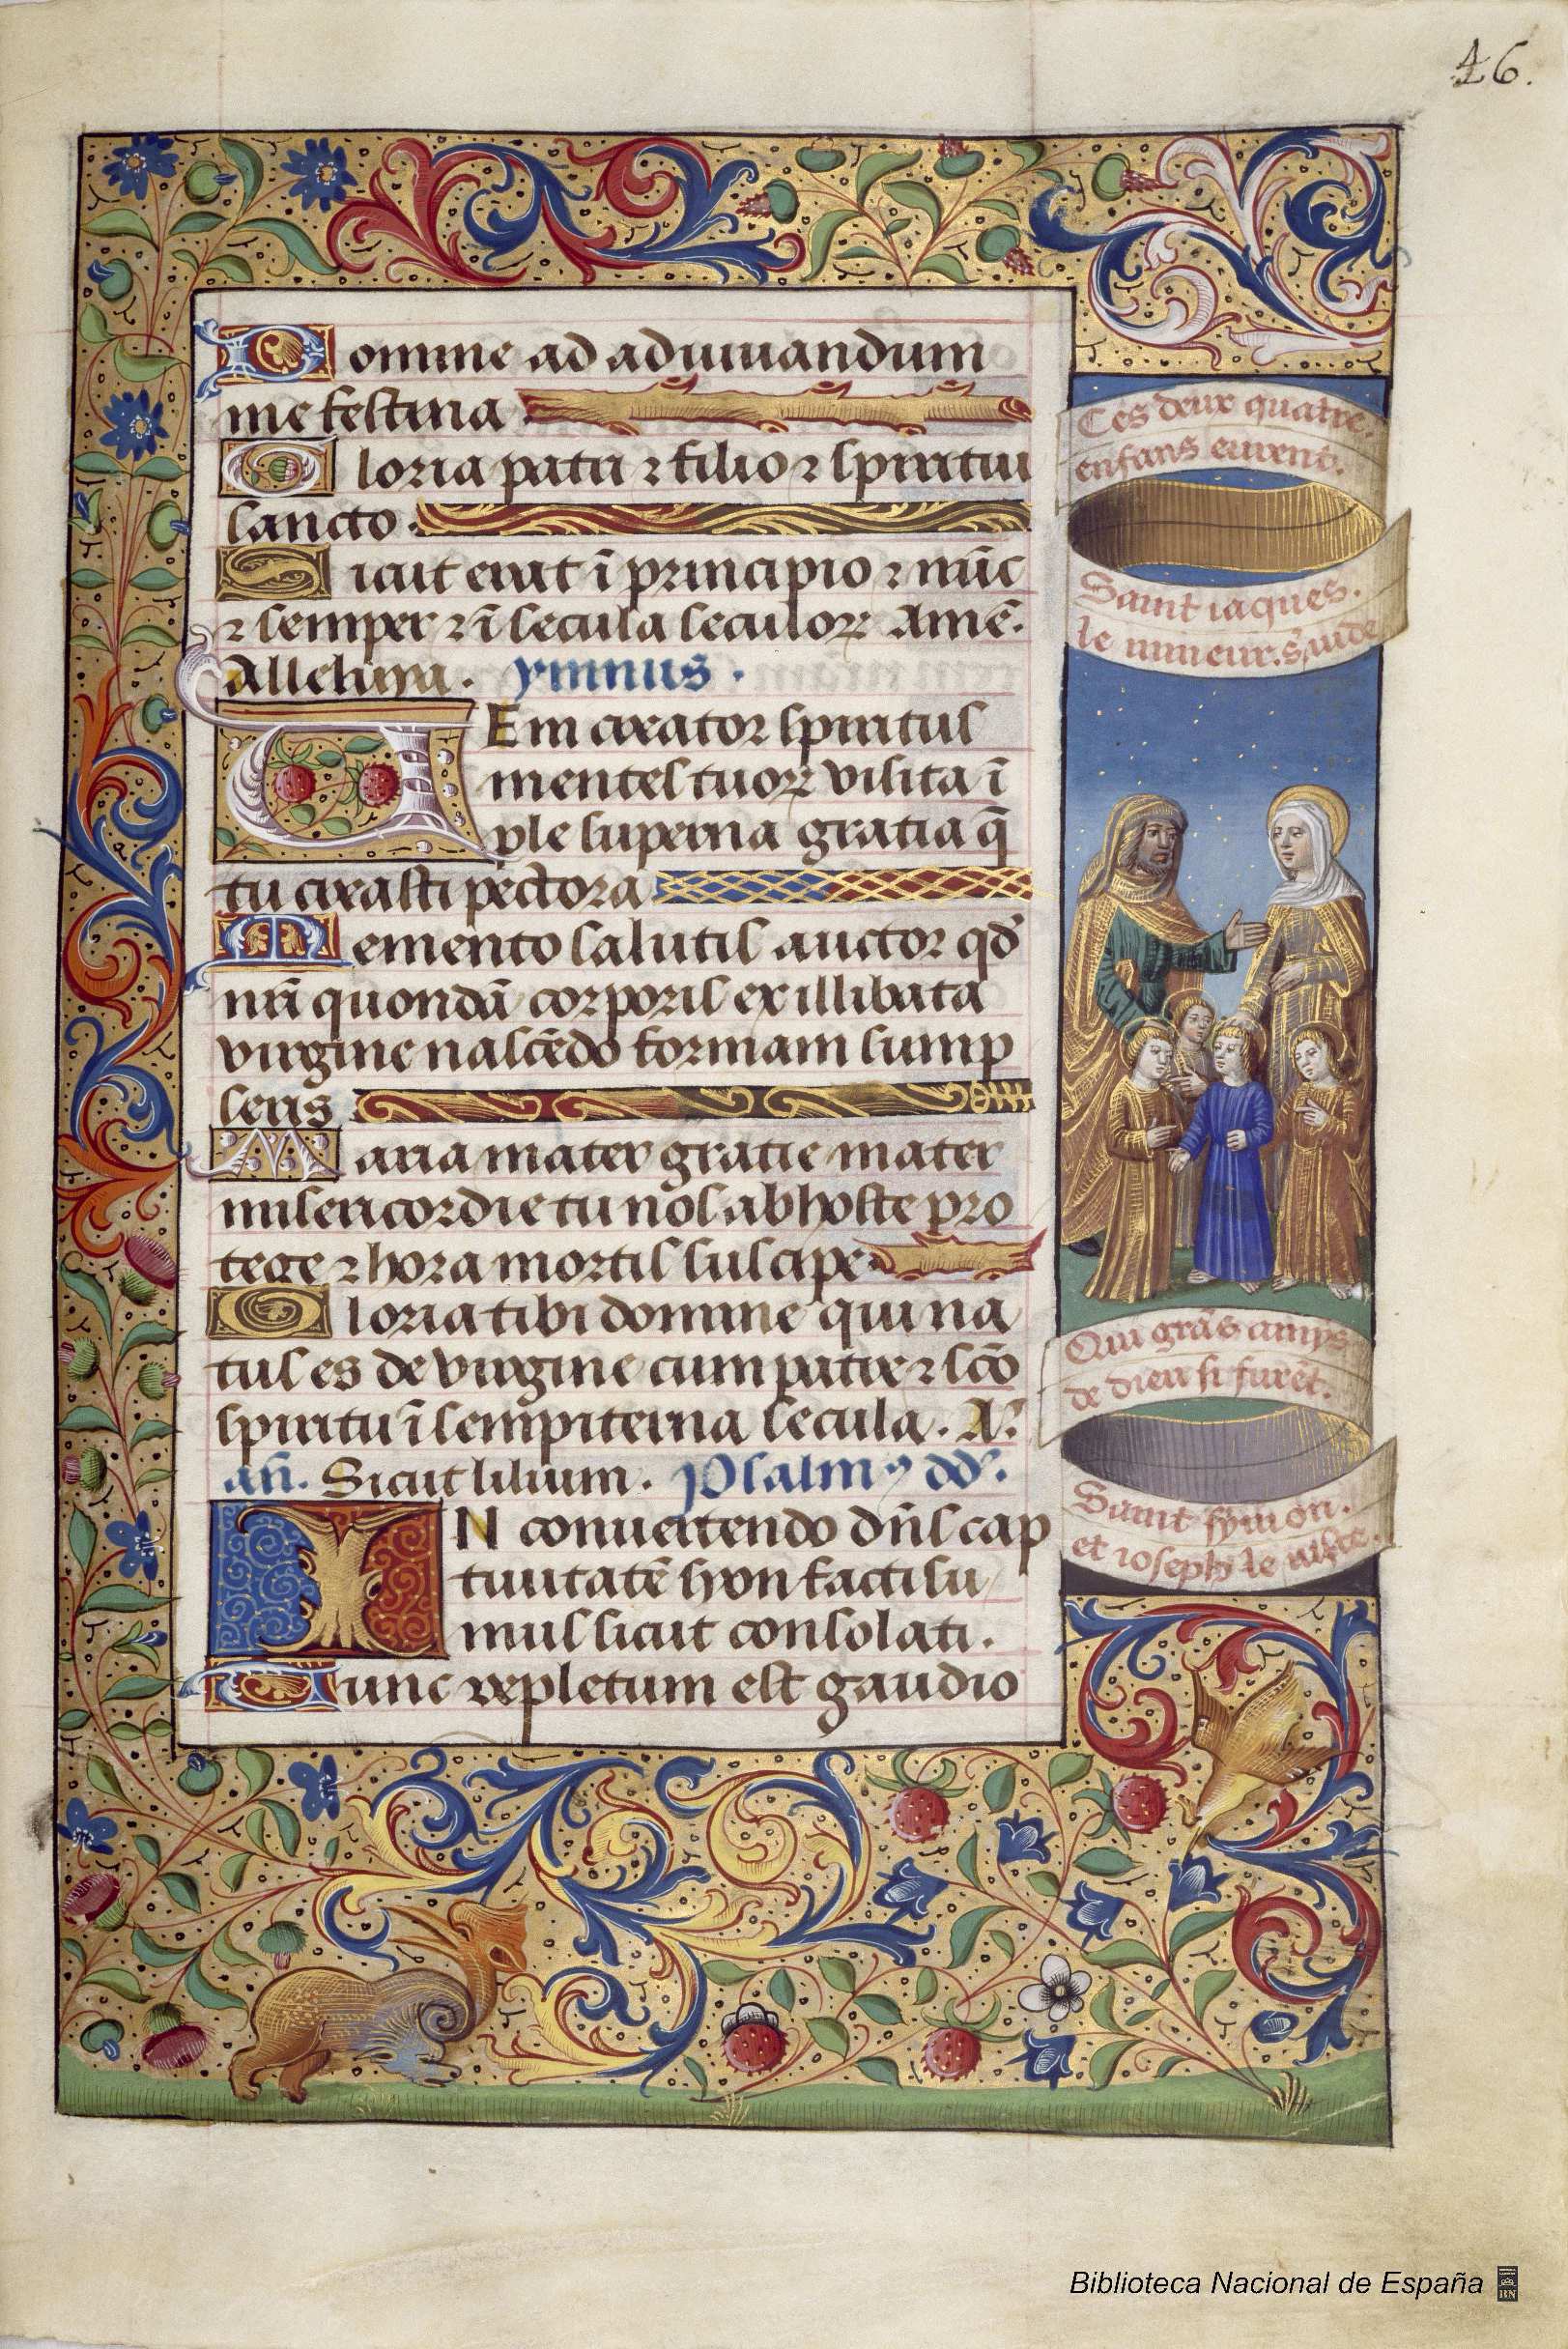 46.
Domine ad adiuuandum
me festina
Gloria patri ⁊ filio ⁊ spiritui
sancto.
Sicut erat ī principio ⁊ nūc
⁊ semper ⁊ ī secula seculoꝝ Amē.
Alleluya. ymnus.
VEni creator spiritus
mentes tuoꝝ visita ī
ple superna gratia q̄
tu creasti pectora
Memento salutis auctor qd̄
nr̄i quondā corporis ex illibata
virgine nascēdo formam sump
seris
Maria mater gratie mater
misericordie tu nos ab hoste pro
tege ⁊ hora mortis suscipe
Gloria tibi domine qui na
tus es de virgine cum patre ⁊ scō
spiritu ī sempiterna secula. A.
añ. Sicut lilium. Psalmꝰ dd̄.
IN conuertendo dn̄s cap
tiuitatē syon facti su
mus sicut consolati.
Tunc repletum est gaudio
Ces deux quatre
enfans eurent.
Saint iaques.
le mineur. s. iude
Qui grās amys
de dieu si furēt.
Saint symon.
et ioseph le iuste.
Biblioteca Nacional de España